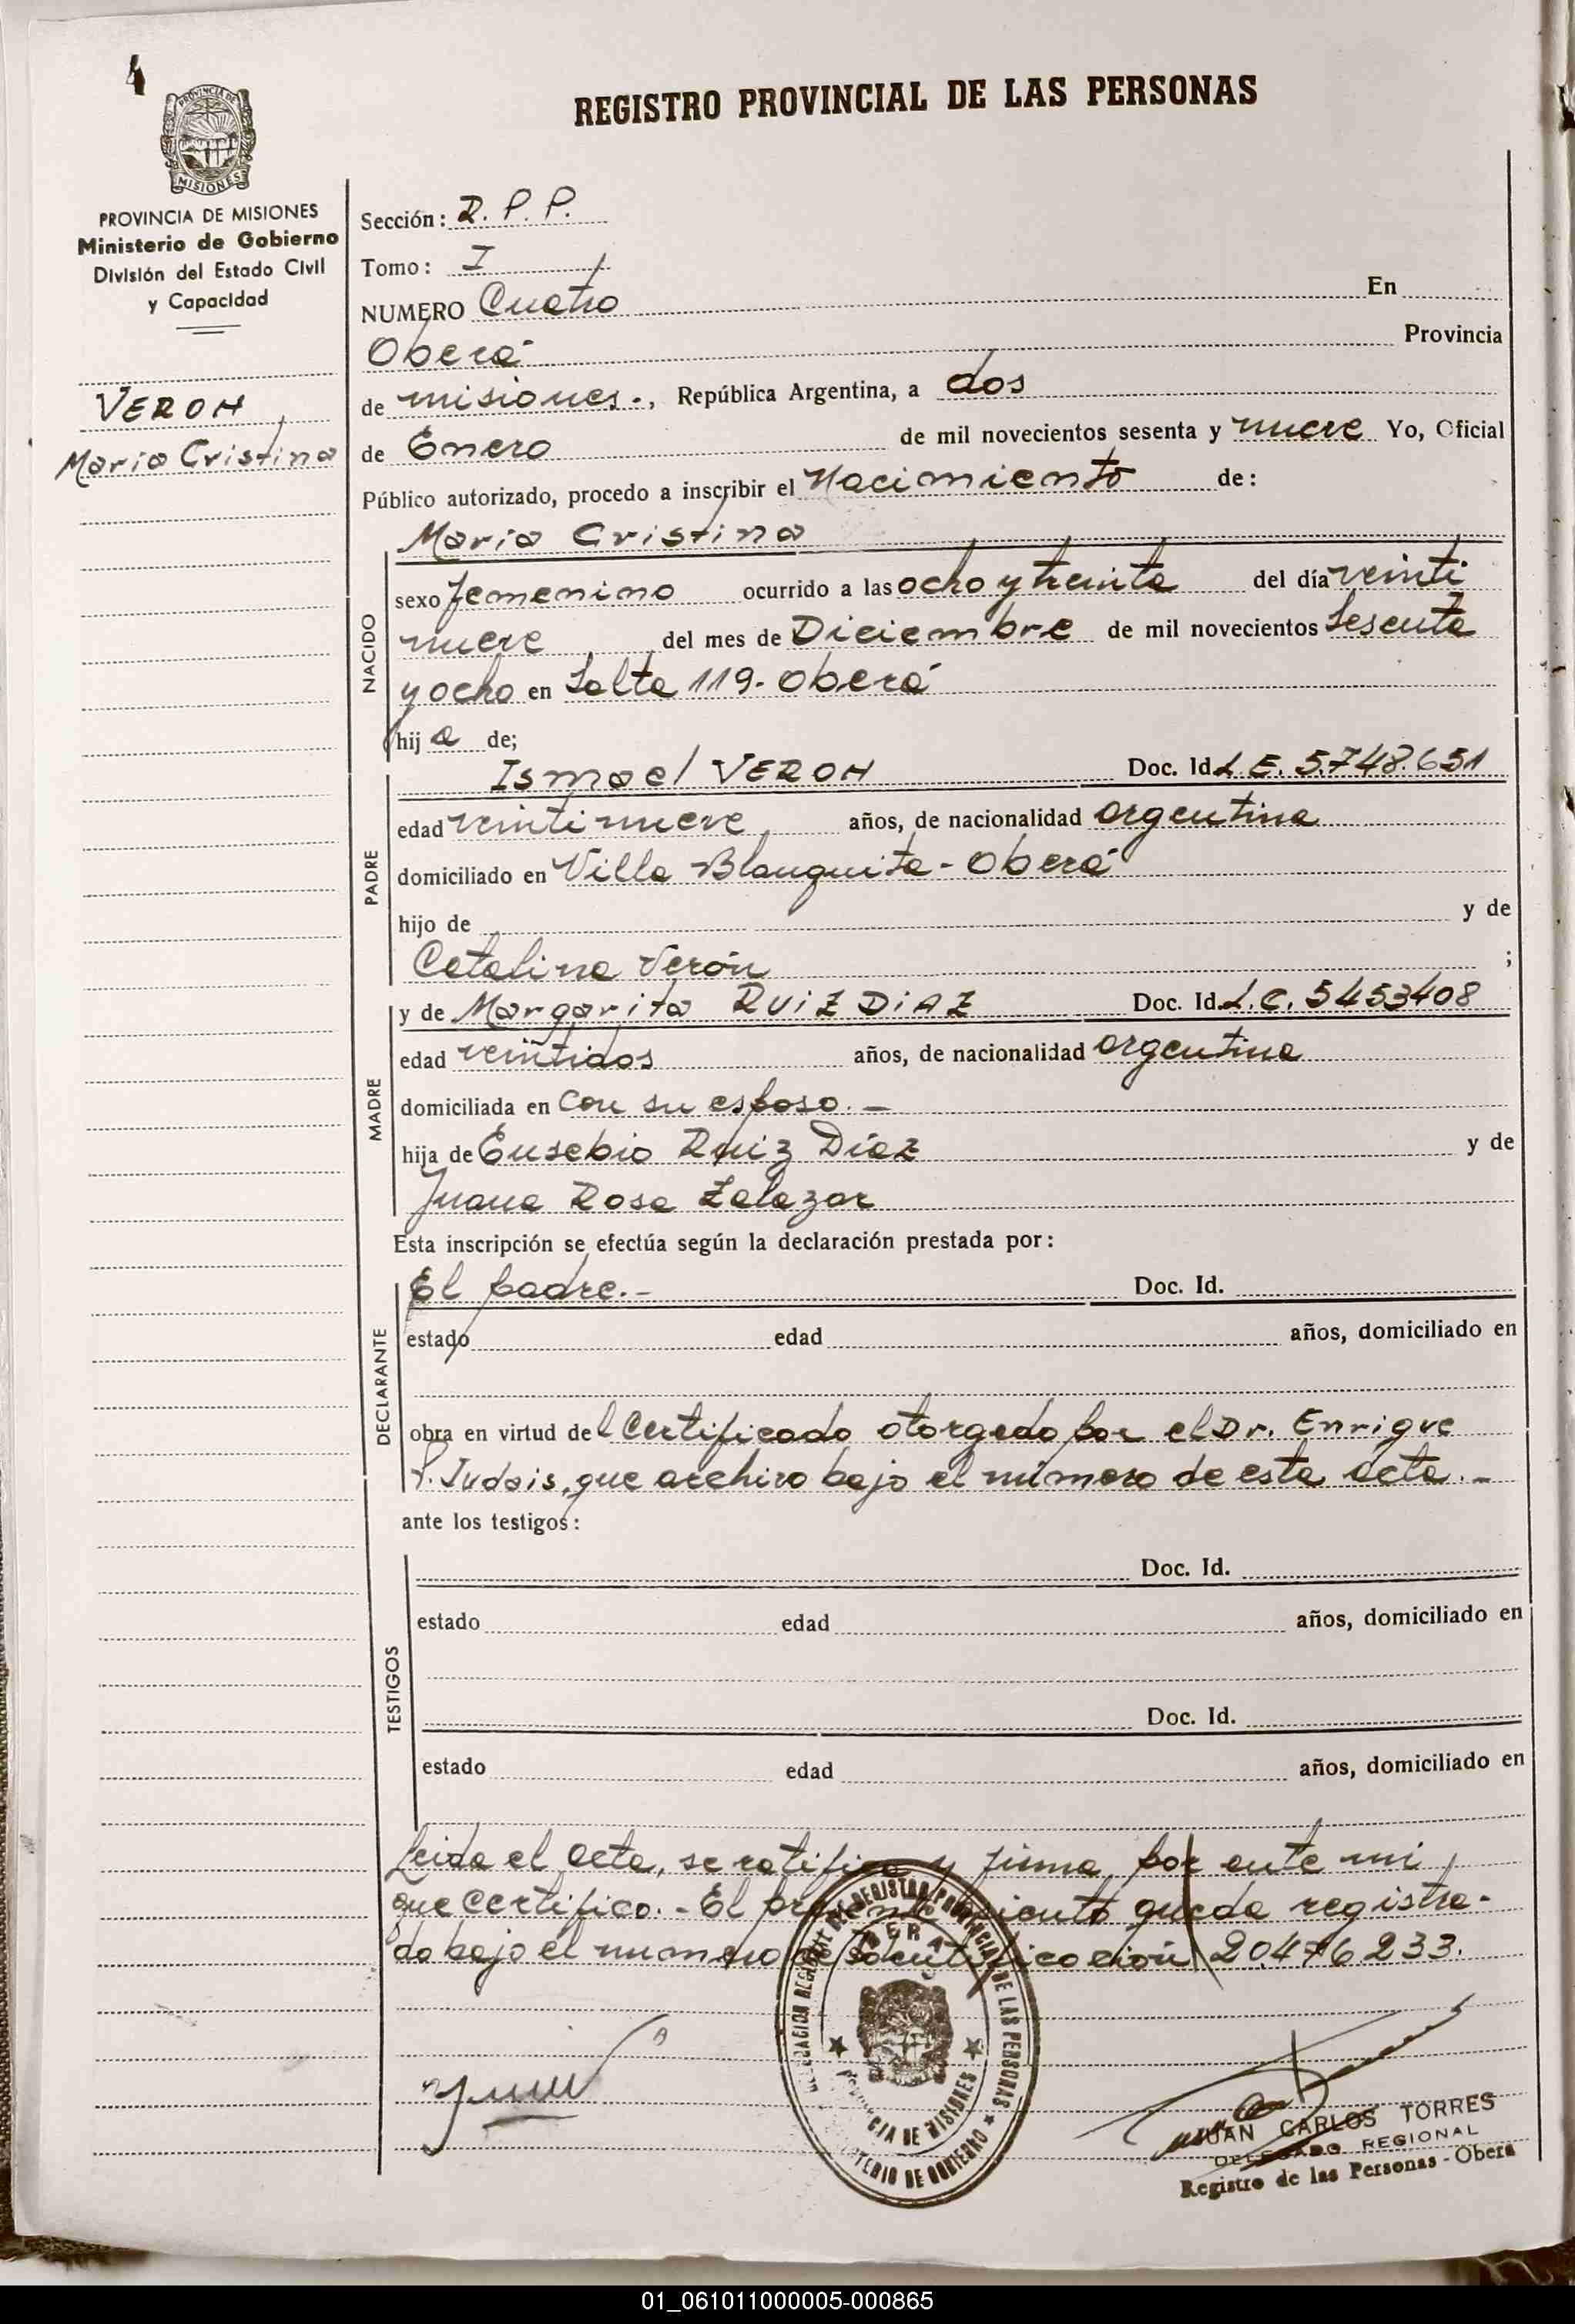 4
REGISTRO PROVINCIAL DE LAS PERSONAS
PROVINCIA DE
MISIONES
PROVINCIA DE MISIONES
Ministerio de Gobierno
División del Estado Civil
y Capacidad
VERON
Maria Cristina
Sección: R. P. P.
Tomo: I
NUMERO Cuatro En
Oberá Provincia
de misiones., República Argentina, a dos
de Enero de mil novecientos sesenta y nueve Yo, Oficial
Público autorizado, procedo a inscribir el Nacimiento de:
NACIDO
Maria Cristina
sexo femenino ocurrido a las ocho y treinta del día veinti
nueve del mes de Diciembre de mil novecientos sesenta
y ocho en Salta 119- Oberá
hij a de;
PADRE
Ismael VERON Doc. Id. L.E. 5.748.651
edad veintinueve años, de nacionalidad argentina
domiciliado en Villa Blanquita - Oberá
hijo de y de
Catalina Verón ;
MADRE
y de Margarita RUIZ DIAZ Doc. Id. L.C. 5453408
edad veintidos años, de nacionalidad argentina
domiciliada en con su esposo. -
hija de Eusebio Ruiz Díaz y de
Juana Rosa Zalazar
Esta inscripción se efectúa según la declaración prestada por:
DECLARANTE
El padre. - Doc. Id.
estado edad años, domiciliado en
obra en virtud del Certificado otorgado por el Dr. Enrique
P. Judais, que archivo bajo el número de esta acta. -
ante los testigos:
TESTIGOS
Doc. Id.
estado edad años, domiciliado en
Doc. Id.
estado edad años, domiciliado en
Leida el acta, se ratifica y firma por ante mi
que certifico. - El presente quedo registra-
do bajo el numero de Identificación 20.476.233.
DELEGACION REGIONAL DEL REGISTRO PROVINCIAL DE LAS PERSONAS
OBERA
PROVINCIA DE MISIONES
MINISTERIO DE GOBIERNO
JUAN CARLOS TORRES
DELEGADO REGIONAL
Registro de las Personas - Oberá
01_061011000005-000865